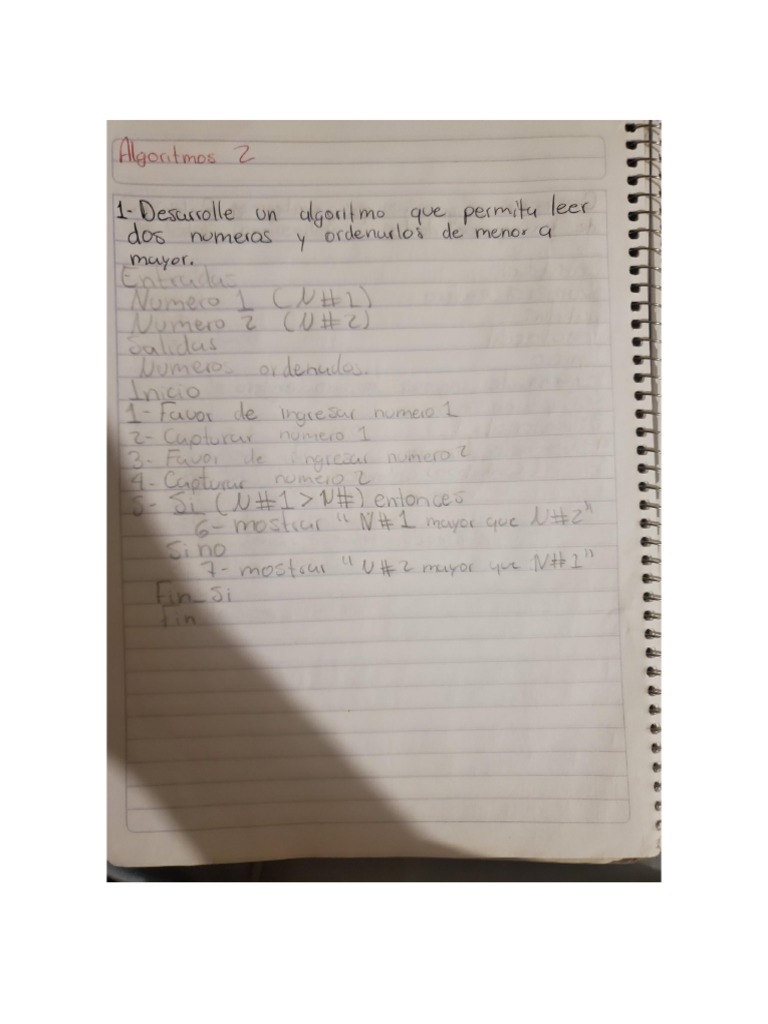 Algoritmos 2
1- Desarrolle un algoritmo que permita leer
dos numeros y ordenarlos de menor a
mayor.
Entradas
Numero 1 (N#1)
Numero 2 (N#2)
Salidas
Numeros ordenados.
Inicio
1- Favor de ingresar numero 1
2- Capturar numero 1
3- Favor de ingresar numero 2
4- Capturar numero 2
5- Si (N#1 > N#) entonces
6- mostrar "N#1 mayor que N#2"
Si no
7- mostrar "N#2 mayor que N#1"
Fin_Si
Fin